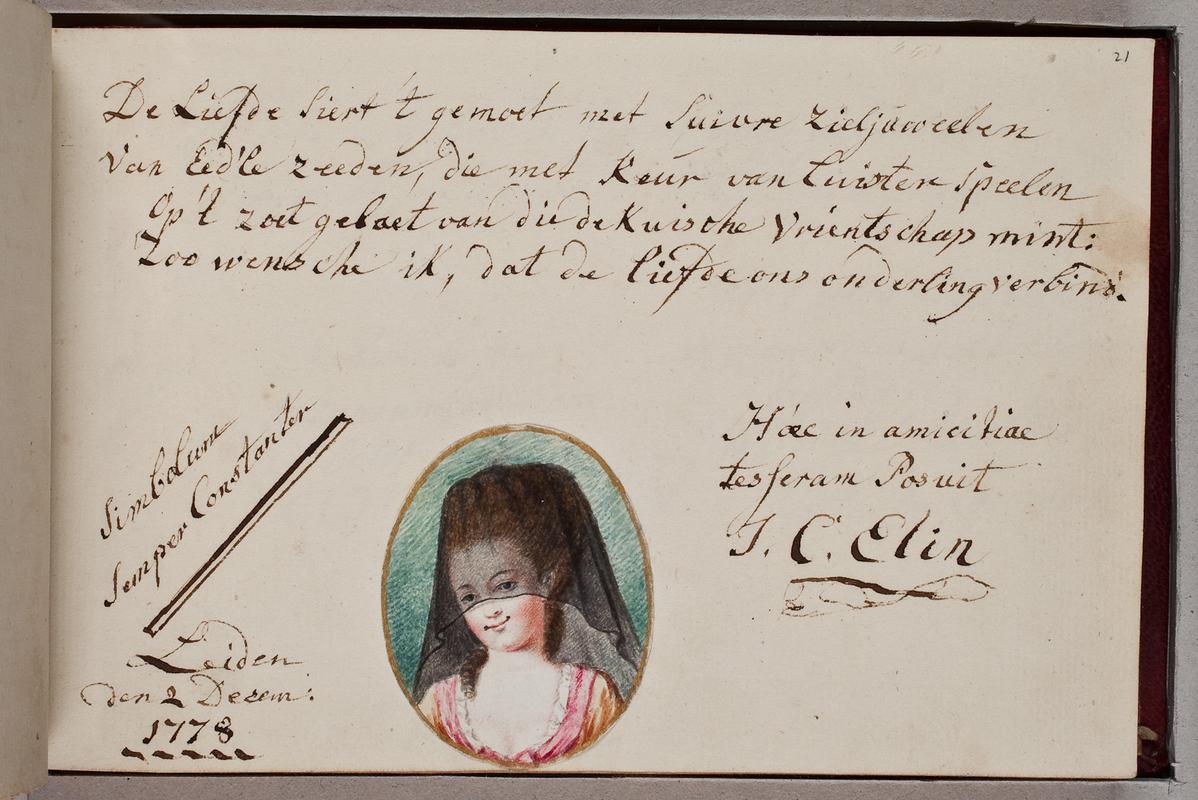 21
De Liefde siert 't gemoet met suivre Zieljuweelen
Van Eed'le zeeden, die met Keur van luister speelen
Op 't zoet gelaet van die de Kuische Vrientschap mint:
Zoo wensche ik, dat de liefde ons onderling verbind.
Simbolum
Semper Constanter
Leiden
den 2 Dezem:
1778
Hæc in amicitiae
tesseram Posuit
J. C. Elin